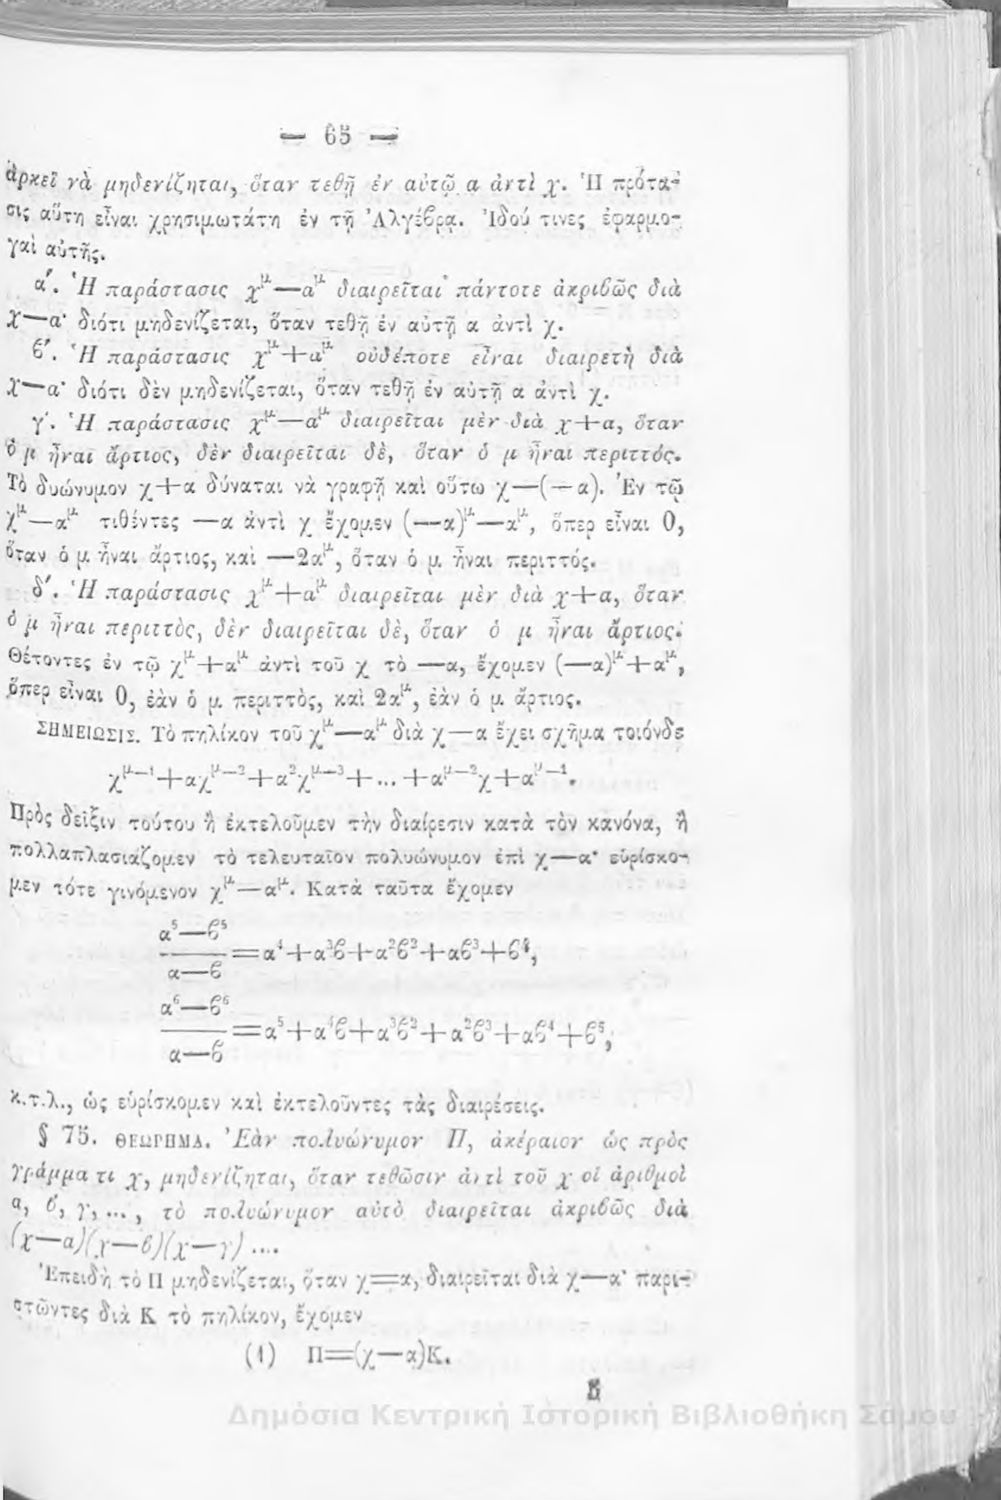 — 65 —
ἀρκεῖ νὰ μηδενίζηται, ὅταν τεθῇ ἐν αὐτῷ α ἀντὶ χ. Ἡ πρότα-
σις αὕτη εἶναι χρησιμωτάτη ἐν τῇ Ἀλγέβρᾳ. Ἰδού τινες ἐφαρμο-
γαὶ αὐτῆς.
α΄. Ἡ παράστασις χ^μ—α^μ διαιρεῖται πάντοτε ἀκριβῶς διὰ
χ—α· διότι μηδενίζεται, ὅταν τεθῇ ἐν αὐτῇ α ἀντὶ χ.
β΄. Ἡ παράστασις χ^μ+α^μ οὐδέποτε εἶναι διαιρετὴ διὰ
χ—α· διότι δὲν μηδενίζεται, ὅταν τεθῇ ἐν αὐτῇ α ἀντὶ χ.
γ΄. Ἡ παράστασις χ^μ—α^μ διαιρεῖται μὲν διὰ χ+α, ὅταν
ὁ μ ἦναι ἄρτιος, δὲν διαιρεῖται δὲ, ὅταν ὁ μ ἦναι περιττός.
Τὸ δυώνυμον χ+α δύναται νὰ γραφῇ καὶ οὕτω χ—(—α). Ἐν τῷ
χ^μ—α^μ τιθέντες —α ἀντὶ χ ἔχομεν (—α)^μ—α^μ, ὅπερ εἶναι 0,
ὅταν ὁ μ ἦναι ἄρτιος, καὶ —2α^μ, ὅταν ὁ μ ἦναι περιττός.
δ΄. Ἡ παράστασις χ^μ+α^μ διαιρεῖται μὲν διὰ χ+α, ὅταν
ὁ μ ἦναι περιττὸς, δὲν διαιρεῖται δὲ, ὅταν ὁ μ ἦναι ἄρτιος.
Θέτοντες ἐν τῷ χ^μ+α^μ ἀντὶ τοῦ χ τὸ —α, ἔχομεν (—α)^μ+α^μ,
ὅπερ εἶναι 0, ἐὰν ὁ μ περιττὸς, καὶ 2α^μ, ἐὰν ὁ μ ἄρτιος.
ΣΗΜΕΙΩΣΙΣ. Τὸ πηλίκον τοῦ χ^μ—α^μ διὰ χ—α ἔχει σχῆμα τοιόνδε
χ^μ—1+αχ^μ—2+α²χ^μ—3+...+α^μ—2χ+α^μ—1.
Πρὸς δεῖξιν τούτου ἢ ἐκτελοῦμεν τὴν διαίρεσιν κατὰ τὸν κανόνα, ἢ
πολλαπλασιάζομεν τὸ τελευταῖον πολυώνυμον ἐπὶ χ—α· εὑρίσκο-
μεν τότε γινόμενον χ^μ—α^μ. Κατὰ ταῦτα ἔχομεν
α⁵—β⁵
=α⁴+α³β+α²β²+αβ³+β⁴,
α—β
α⁶—β⁶
=α⁵+α⁴β+α³β²+α²β³+αβ⁴+β⁵,
α—β
κ.τ.λ., ὡς εὑρίσκομεν καὶ ἐκτελοῦντες τὰς διαιρέσεις.
§ 75. ΘΕΩΡΗΜΑ. Ἐὰν πολυώνυμον Π, ἀκέραιον ὡς πρὸς
γράμμα τι χ, μηδενίζηται, ὅταν τεθῶσιν ἀντὶ τοῦ χ οἱ ἀριθμοὶ
α, β, γ, ..., τὸ πολυώνυμον αὐτὸ διαιρεῖται ἀκριβῶς διὰ
(χ—α)(χ—β)(χ—γ)....
Ἐπειδὴ τὸ Π μηδενίζεται, ὅταν χ=α, διαιρεῖται διὰ χ—α· παρι-
στῶντες διὰ Κ τὸ πηλίκον, ἔχομεν
(1) Π=(χ—α)Κ.
5
Δημόσια Κεντρική Ιστορική Βιβλιοθήκη Σάμου